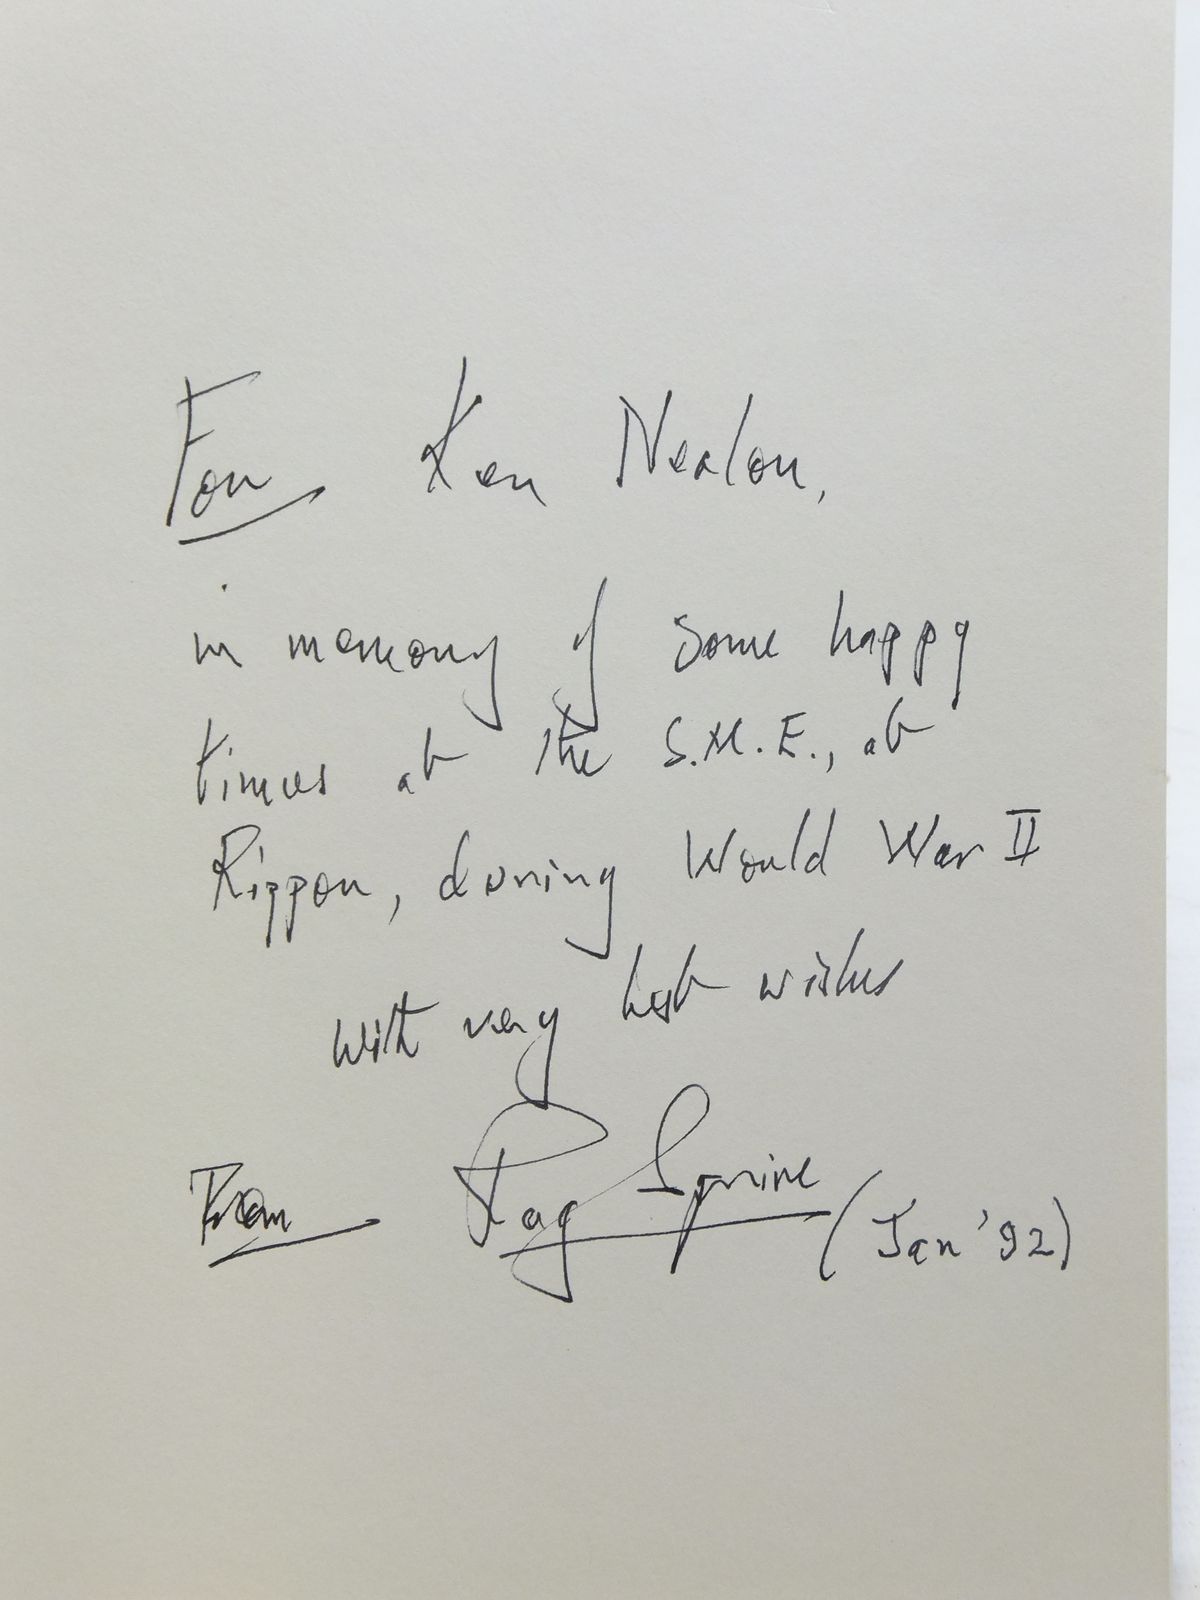 For Ken Nealon,
in memory of some happy
times at the S.M.E., at
Rippon, during World War II
With very best wishes
From Ray Sprine (Jan '92)